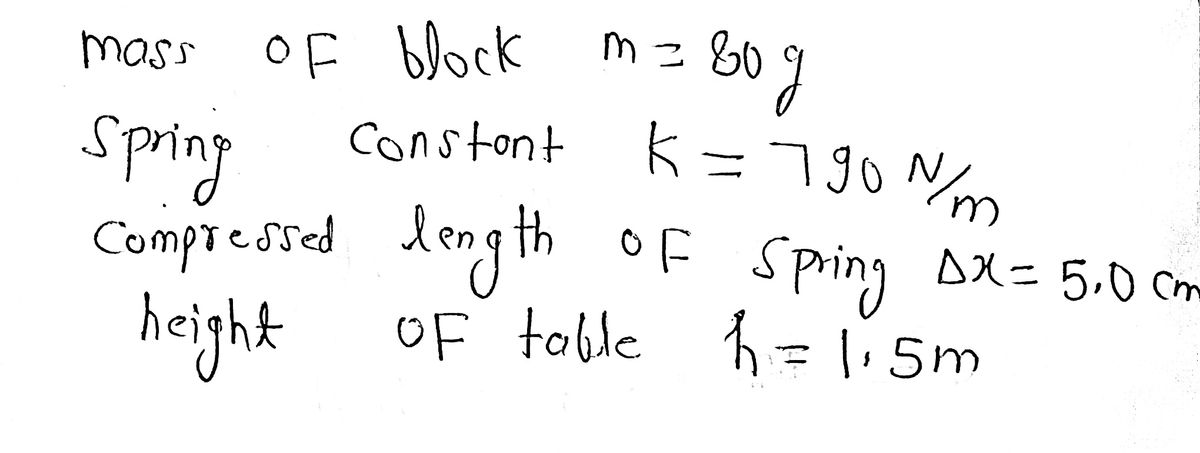 mass OF block m = 80 g
Spring Constant K = 790 N/m
Compressed length OF Spring Δx = 5.0 cm
height OF table h = 1.5m